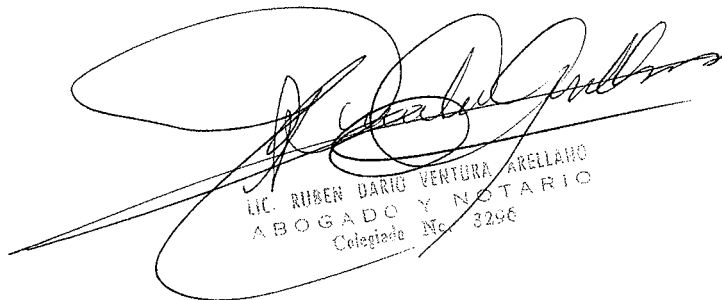 LIC. RUBEN DARIO VENTURA ARELLANO
ABOGADO Y NOTARIO
Colegiado No. 3296